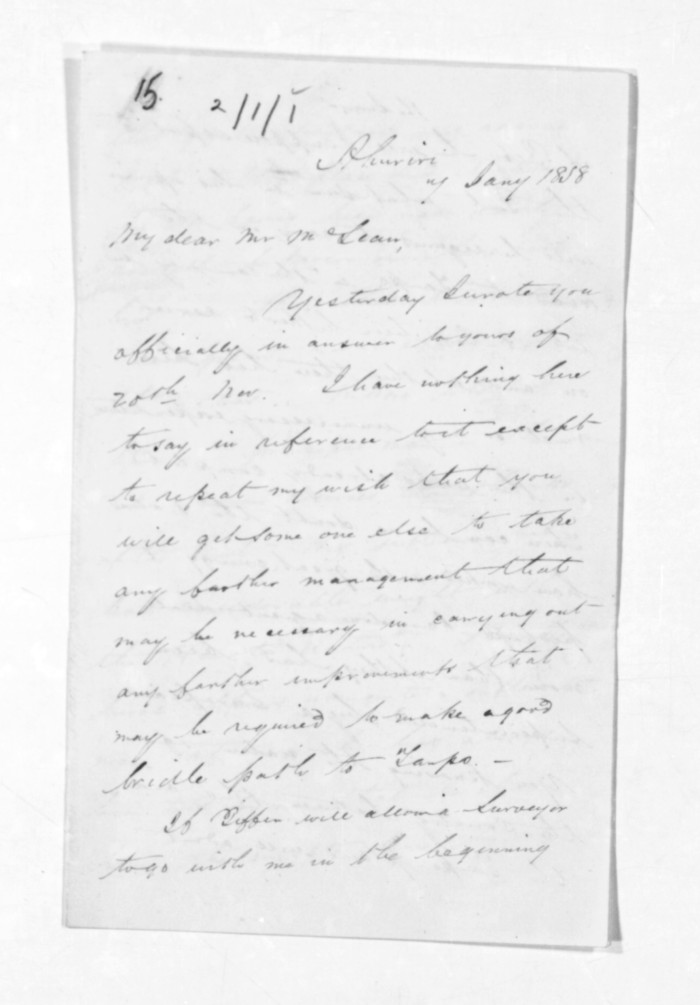 15 2/1/1
Ahuriri
7 Jany 1858
My dear Mr McLean,
Yesterday I wrote you
officially in answer to yours of
20th Nov. I have nothing here
to say in reference to it except
to repeat my wish that you
will get some one else to take
any farther management that
may be necessary in carrying out
any farther improvements that
may be required to make a good
bridle path to Tapo. -
If Tiffen will allow a Surveyor
to go with me in the beginning